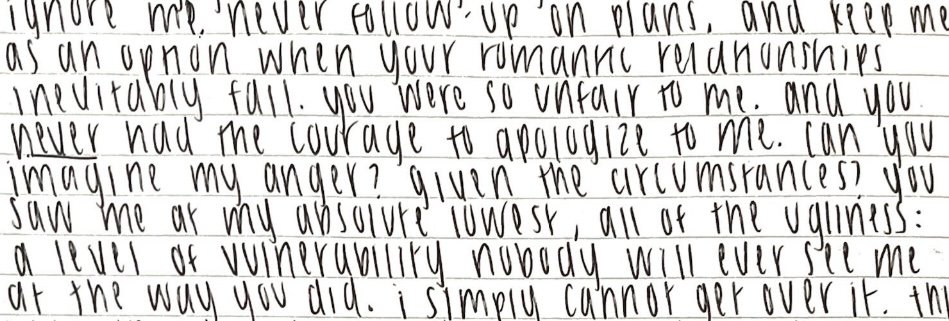 ignore me, never follow-up on plans, and keep me
as an option when your romantic relationships
inevitably fail. you were so unfair to me. and you
never had the courage to apologize to me. can you
imagine my anger? given the circumstances? you
saw me at my absolute lowest, all of the ugliness:
a level of vulnerability nobody will ever see me
at the way you did. i simply cannot get over it.